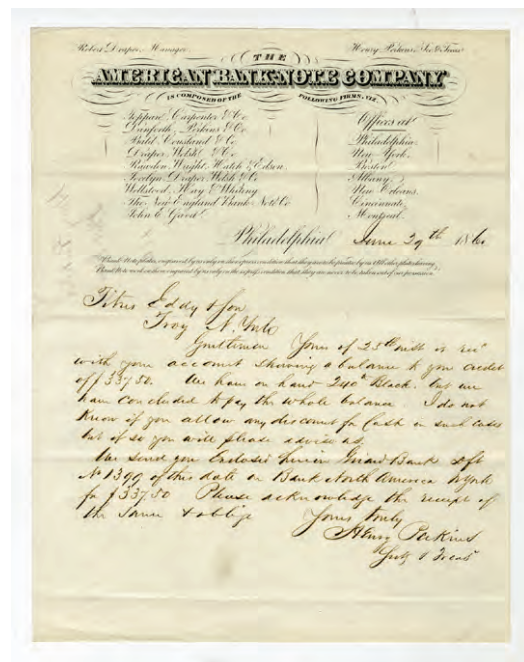 Robert Draper, Manager Henry Perkins, Sec & Treas
THE
AMERICAN BANK-NOTE COMPANY
IS COMPOSED OF THE FOLLOWING FIRMS, VIZ.
Toppan, Carpenter & Co.
Danforth, Perkins & Co.
Bald, Cousland & Co.
Draper, Welsh & Co.
Rawdon, Wright, Hatch & Edson.
Jocelyn, Draper, Welsh & Co.
Wellstood, Hay & Whiting
The New England Bank Note Co.
John E. Gavit.
Offices at
Philadelphia.
New York.
Boston.
Albany.
New Orleans.
Cincinnati.
Montreal.
Philadelphia June 29th 1860
Titus Eddy & Son
Troy N. York
Gentlemen Yours of 25th inst is rec
with your account showing a balance to your credit
of $337.50. We have on hand 240 Black. but we
have concluded to pay the whole balance. I do not
know if you allow any discount for Cash in such cases
but if so you will please advise us
We send you Enclosed herein Girard Bank dft
No 1399 of this date on Bank North America NYork
for $337.50 Please acknowledge the receipt of
the same & oblige
Yours truly
Henry Perkins
Secty & Treas